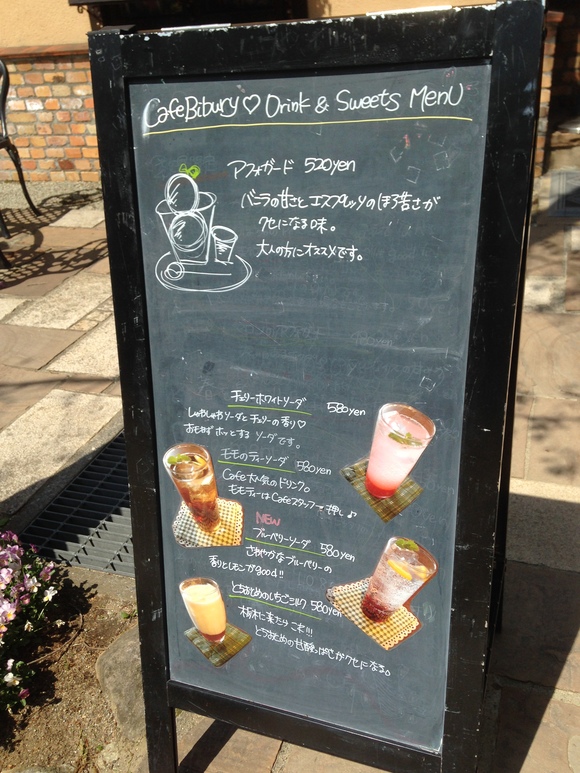 CafeBibury♡ Drink & Sweets MenU
アフォガード 520yen
バニラの甘さと エスプレッソのほろ苦さが
クセになる味。
大人の方にオススメです。
チェリーホワイトソーダ 580yen
しゅわしゅわソーダとチェリーの香り♡
おもわず ホッとする ソーダです。
モモのティーソーダ 580yen
Cafe大人気のドリンク。
モモティーはCafeスタッフ一押し♪
NEW
ブルーベリーソーダ 580yen
さわやかなブルーベリーの
香りとレモンがgood!!
とちおとめのいちごミルク 580yen
栃木に来たらこれ!!!
とちおとめの甘酸っぱさがクセになる。